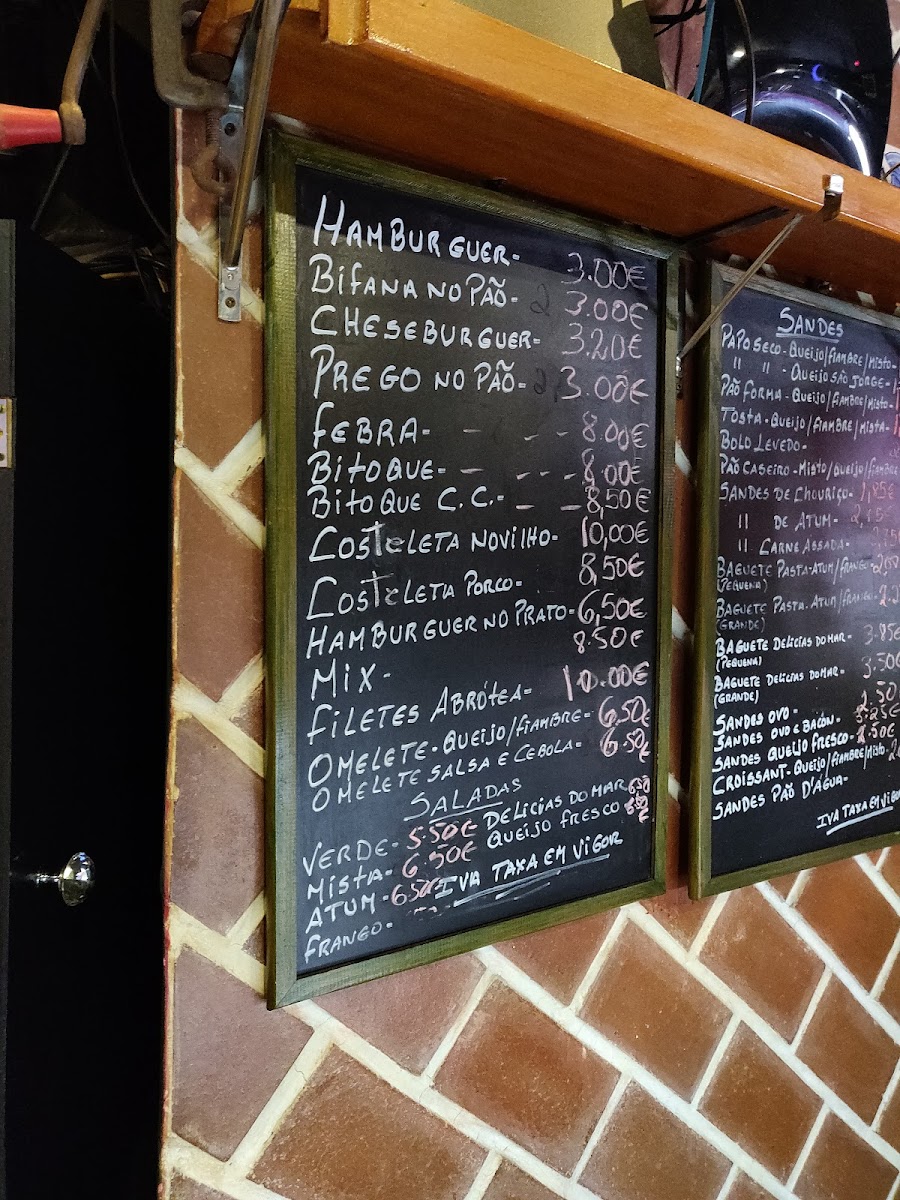 HAMBURGUER- 3.00€
BIFANA NO PÃO- 3.00€
CHESEBURGUER- 3.20€
PREGO NO PÃO- 3.00€
FEBRA- - - - 8.00€
BITOQUE- - - - - 8,00€
BITOQUE C.C.- - - 8,50€
COSTELETA NOVILHO- 10,00€
COSTELETA PORCO- 8,50€
HAMBURGUER NO PRATO- 6,50€
MIX- 8.50€
FILETES ABRÓTEA- 10.00€
OMELETE-QUEIJO/FIAMBRE- 6,50€
OMELETE SALSA E CEBOLA- 6.50€
SALADAS
VERDE- 5.50€ DELICIAS DO MAR 6.50
MISTA- 6.50€ QUEIJO FRESCO
ATUM- 6.50€ IVA TAXA EM VIGOR
FRANGO-
SANDES
PAPOSECO-QUEIJO/FIAMBRE/MISTO-
" " -QUEIJO SÃO JORGE-
PÃO FORMA-QUEIJO/FIAMBRE/MISTO-
TOSTA-QUEIJO/FIAMBRE/MISTA-
BOLO LEVEDO-
PÃO CASEIRO-MISTO/QUEIJO/FIAMBRE
SANDES DE CHOURIÇO- 1,85€
" DE ATUM-
" CARNE ASSADA-
BAGUETE PASTA-ATUM/FRANGO-
(PEQUENA)
BAGUETE PASTA-ATUM/FRANGO-
(GRANDE)
BAGUETE DELICIAS DO MAR- 3.85€
(PEQUENA)
BAGUETE DELICIAS DO MAR- 3.50€
(GRANDE)
SANDES OVO- 2.50
SANDES OVO E BACON- 3.25€
SANDES QUEIJO FRESCO- 2.50€
CROISSANT-QUEIJO/FIAMBRE/MISTO-
SANDES PÃO D'ÁGUA-
IVA TAXA EM VIGOR